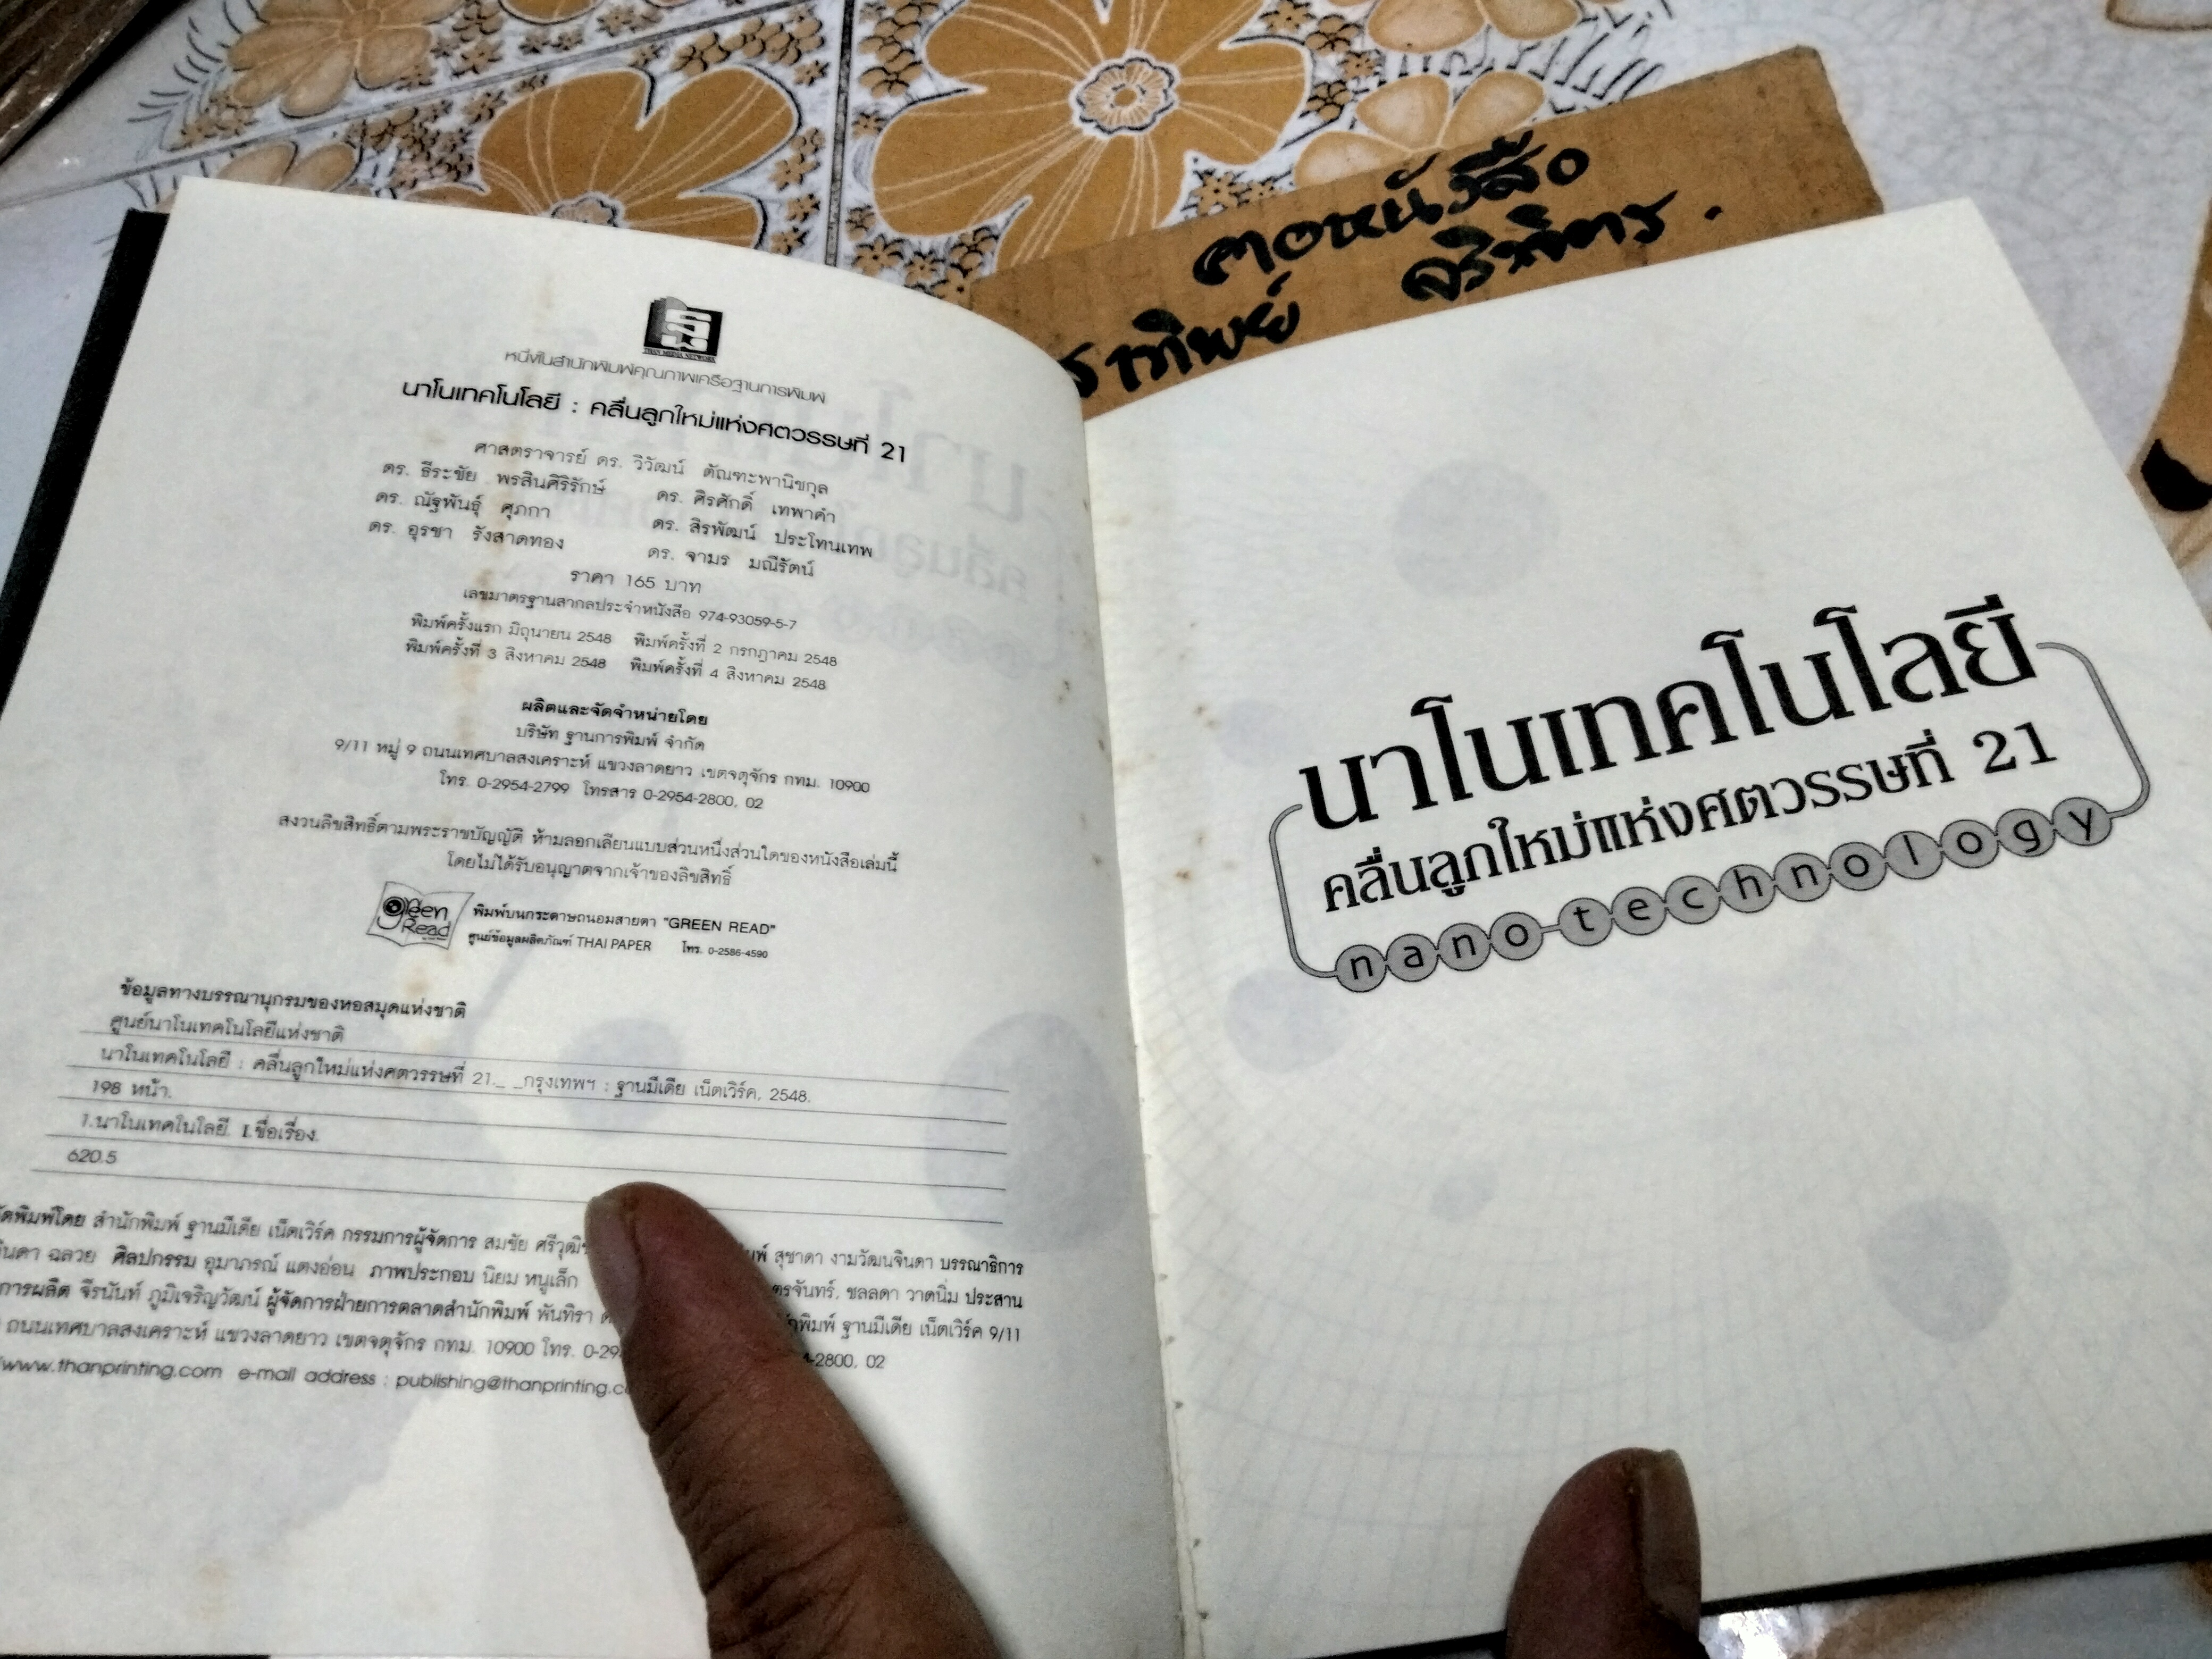 คอหนังสือ
ราทิพย์ จริตจิตร.
THAN MEDIA NETWORK
หนึ่งในสำนักพิมพ์คุณภาพเครือฐานการพิมพ์
นาโนเทคโนโลยี : คลื่นลูกใหม่แห่งศตวรรษที่ 21
ศาสตราจารย์ ดร. วิวัฒน์ ตัณฑะพานิชกุล
ดร. ธีระชัย พรสินศิริรักษ์ ดร. ศิรศักดิ์ เทพาคำ
ดร. ณัฐพันธุ์ ศุภกา ดร. สิรพัฒน์ ประโทนเทพ
ดร. อุรชา รังสาดทอง ดร. จามร มณีรัตน์
ราคา 165 บาท
เลขมาตรฐานสากลประจำหนังสือ 974-93059-5-7
พิมพ์ครั้งแรก มิถุนายน 2548 พิมพ์ครั้งที่ 2 กรกฎาคม 2548
พิมพ์ครั้งที่ 3 สิงหาคม 2548 พิมพ์ครั้งที่ 4 สิงหาคม 2548
ผลิตและจัดจำหน่ายโดย
บริษัท ฐานการพิมพ์ จำกัด
9/11 หมู่ 9 ถนนเทศบาลสงเคราะห์ แขวงลาดยาว เขตจตุจักร กทม. 10900
โทร. 0-2954-2799 โทรสาร 0-2954-2800, 02
สงวนลิขสิทธิ์ตามพระราชบัญญัติ ห้ามลอกเลียนแบบส่วนหนึ่งส่วนใดของหนังสือเล่มนี้
โดยไม่ได้รับอนุญาตจากเจ้าของลิขสิทธิ์
green Read
พิมพ์บนกระดาษถนอมสายตา "GREEN READ"
ศูนย์ข้อมูลผลิตภัณฑ์ THAI PAPER โทร. 0-2586-4590
ข้อมูลทางบรรณานุกรมของหอสมุดแห่งชาติ
ศูนย์นาโนเทคโนโลยีแห่งชาติ
นาโนเทคโนโลยี : คลื่นลูกใหม่แห่งศตวรรษที่ 21._ _กรุงเทพฯ : ฐานมีเดีย เน็ตเวิร์ค, 2548.
198 หน้า.
1.นาโนเทคโนโลยี. I.ชื่อเรื่อง.
620.5
ัดพิมพ์โดย สำนักพิมพ์ ฐานมีเดีย เน็ตเวิร์ค กรรมการผู้จัดการ สมชัย ศรีวุฒิ พ์ สุชาดา งามวัฒนจินดา บรรณาธิการ
ินดา ฉลวย ศิลปกรรม อุมาภรณ์ แตงอ่อน ภาพประกอบ นิยม หนูเล็ก ตรจันทร์, ชลลดา วาดนิ่ม ประสาน
การผลิต จีรนันท์ ภูมิเจริญวัฒน์ ผู้จัดการฝ่ายการตลาดสำนักพิมพ์ พันทิรา ักพิมพ์ ฐานมีเดีย เน็ตเวิร์ค 9/11
ถนนเทศบาลสงเคราะห์ แขวงลาดยาว เขตจตุจักร กทม. 10900 โทร. 0-29 -2800, 02
/www.thanprinting.com e-mail address : publishing@thanprinting.c
นาโนเทคโนโลยี
คลื่นลูกใหม่แห่งศตวรรษที่ 21
nanotechnology